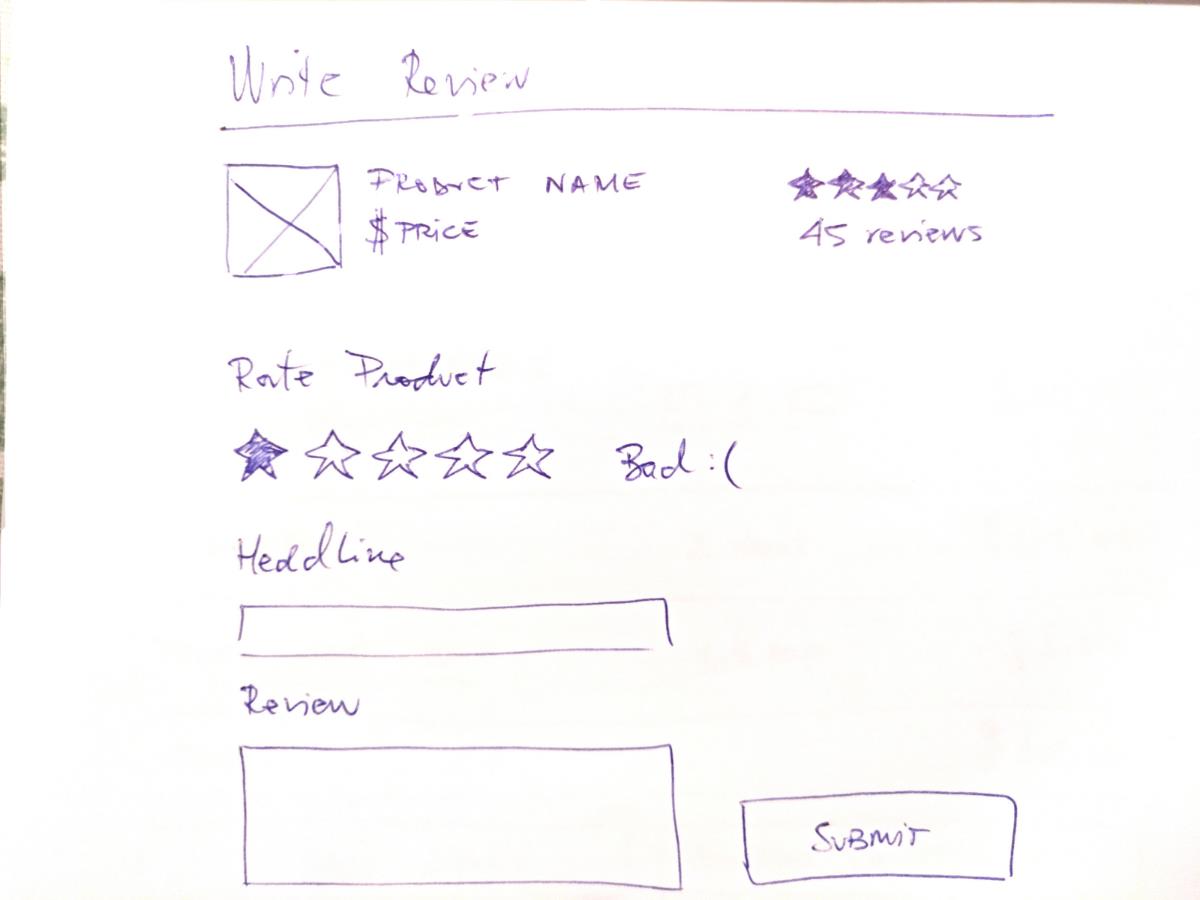 Write Review
PRODUCT NAME
$ PRICE
45 reviews
Rate Product
Bad :(
Headline
Review
SUBMIT